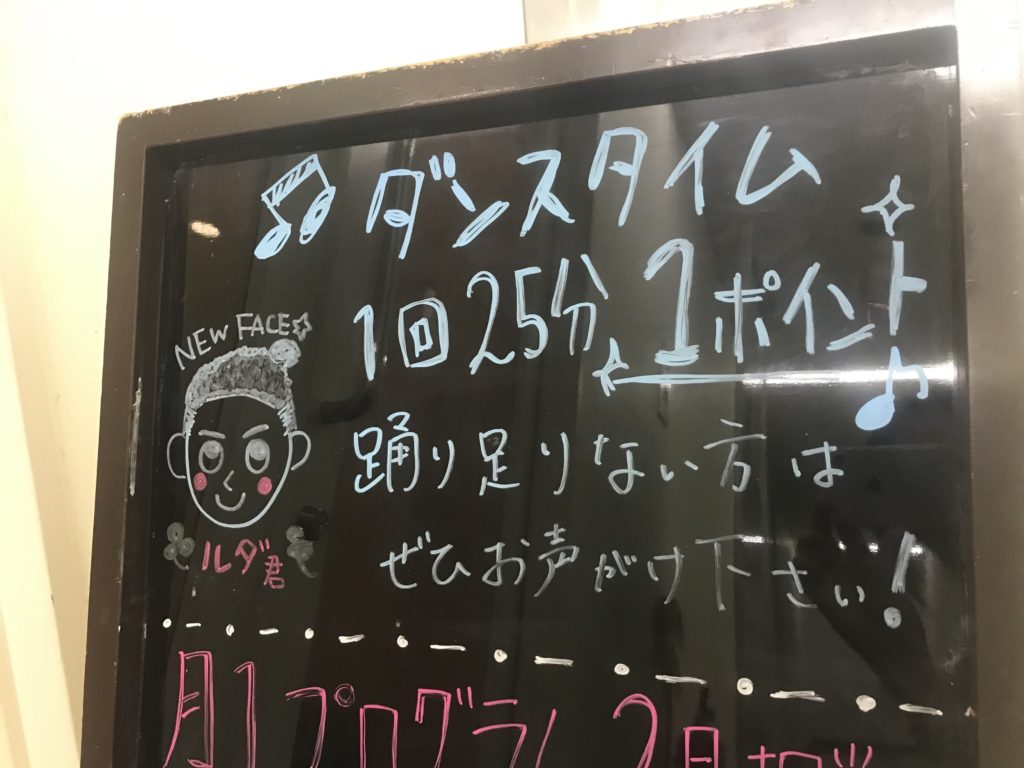 ダンスタイム
1回25分 1ポイント
NEW FACE
踊り足りない方は
ぜひお声がけ下さい!
ルダ君
月1プログラム 2月